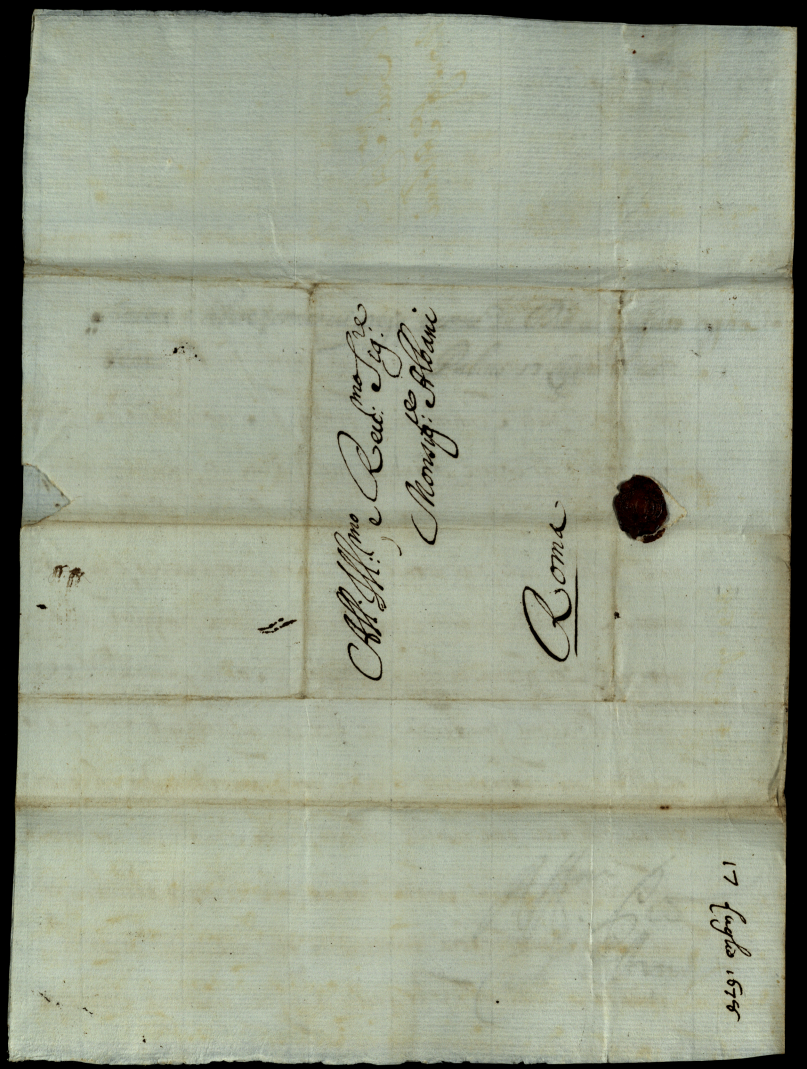 All' Ill:mo e Reu:mo Sig:re
Monsig:re Albani
Roma
17 Luglio